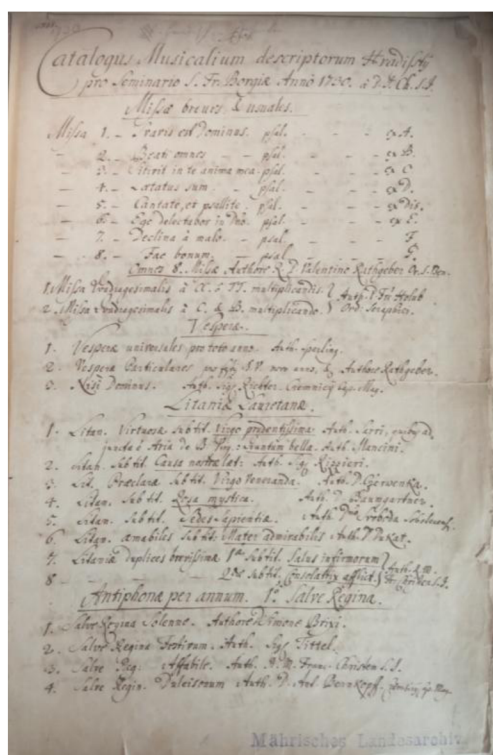 Catalogus Musicalium descriptorum Hradisty
pro Seminario S. Fr. Borgiæ Anno 1730. à P. Ch. S.J.
Missæ breves & usuales.
Missa 1. – Suavis est Dominus. psal. – – – ex A.
– 2. – Beati omnes – – psal. – – – ex B.
– 3. – Sitivit in te anima mea psal. – – – ex C
– 4. – Lætatus sum – psal. – – – ex D.
– 5. – Cantate, et psallite. psal. – – – ex Dis.
– 6. – Ego delectabor in Dno. psal. – – – ex E.
– 7. – Declina à malo. – psal. – – – F.
– 8. – Fac bonum. psal. – – – G.
Omnes 8. Missæ Authore R. P. Valentino Rathgeber Or. S. Ben.
1. Missa Quadragesimalis à multiplicandis.
2. Missa Quadragesimalis à C. & B. multiplicando. Auth. P. Fr. Holub Ord.
Vesperæ.
1. Vesperæ universales pro toto anno. Auth. Speiling.
2. Vesperæ Particulares per Authore Rathgeber.
3. Nisi Dominus. Auth. Sig. Richter.
Litaniæ Lauretanæ.
1. Litan. Virtuosæ Subtit. Virgo prudentissima. Auth. Sarri,
juncta è Aria de B. Spuntan bella. Auth. Mancini.
2. Litan. Subtit. Causa nostræ læt: Auth. Sig.
3. Lit. Præclaræ Subtit. Virgo Veneranda. Auth. D. Czerwenka.
4. Litan. Subtit. Rosa mystica. Auth. D. Baumgartner.
5. Litan. Subtit. Sedes Sapientiæ. Auth. Dno Svoboda
6. Litan. amabiles Subtit. Mater admirabilis Auth.
7. Litaniæ Duplices brevissimæ 1mæ Subtit. Salus infirmorum
8. – – – 2dæ Subtit. Consolatrix afflict. Auth. R. P. Fr. Christen S.J.
Antiphonæ per annum. 1o. Salve Regina.
1. Salve Regina Solenne. Authore D. Simone Brixi.
2. Salve Regina Festivum. Auth. Sig. Tittel.
3. Salve Reg: Affabile. Auth. R. P. Franc. Christen S.J.
4. Salve Regin. Dulcisonum Auth. D. Ant. Bernkopff.
Mährisches Landesarchiv